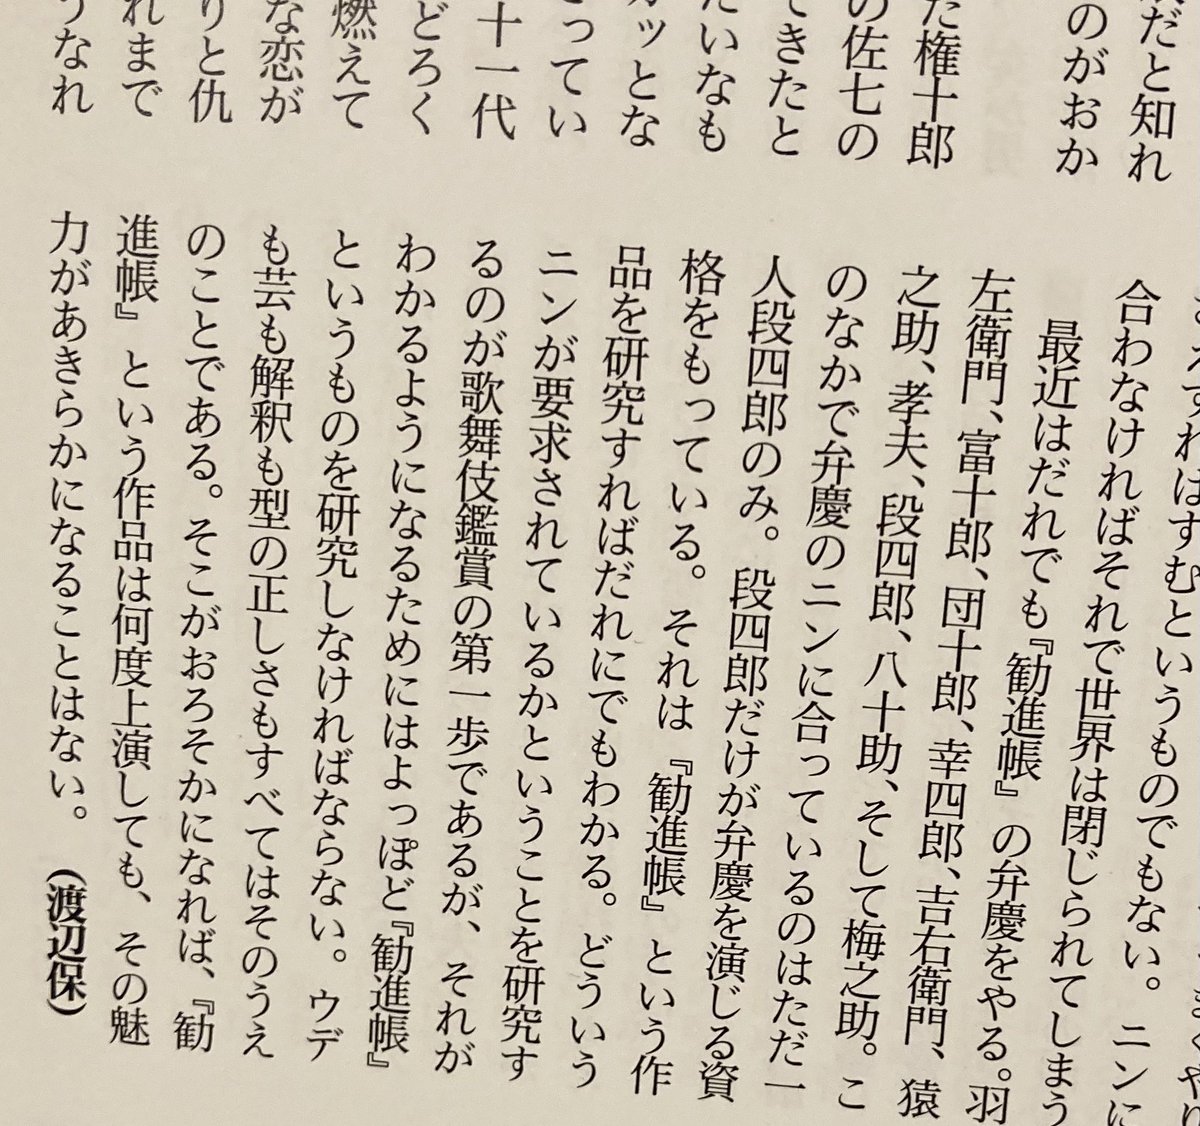 だと知れ
のがおか
た権十郎
の佐七の
てきたと
たいなも
カッとな
ってい
十一代
どろく
燃えて
な恋が
りと仇
れまで
うなれ
えすればすむというものでもない。
合わなければそれで世界は閉じられてしまう
最近はだれでも『勧進帳』の弁慶をやる。羽
左衛門、富十郎、団十郎、幸四郎、吉右衛門、猿
之助、孝夫、段四郎、八十助、そして梅之助。こ
のなかで弁慶のニンに合っているのはただ一
人段四郎のみ。段四郎だけが弁慶を演じる資
格をもっている。それは『勧進帳』という作
品を研究すればだれにでもわかる。どういう
ニンが要求されているかということを研究す
るのが歌舞伎鑑賞の第一歩であるが、それが
わかるようになるためにはよっぽど『勧進帳』
というものを研究しなければならない。ウデ
も芸も解釈も型の正しさもすべてはそのうえ
のことである。そこがおろそかになれば、『勧
進帳』という作品は何度上演しても、その魅
力があきらかになることはない。 (渡辺保)